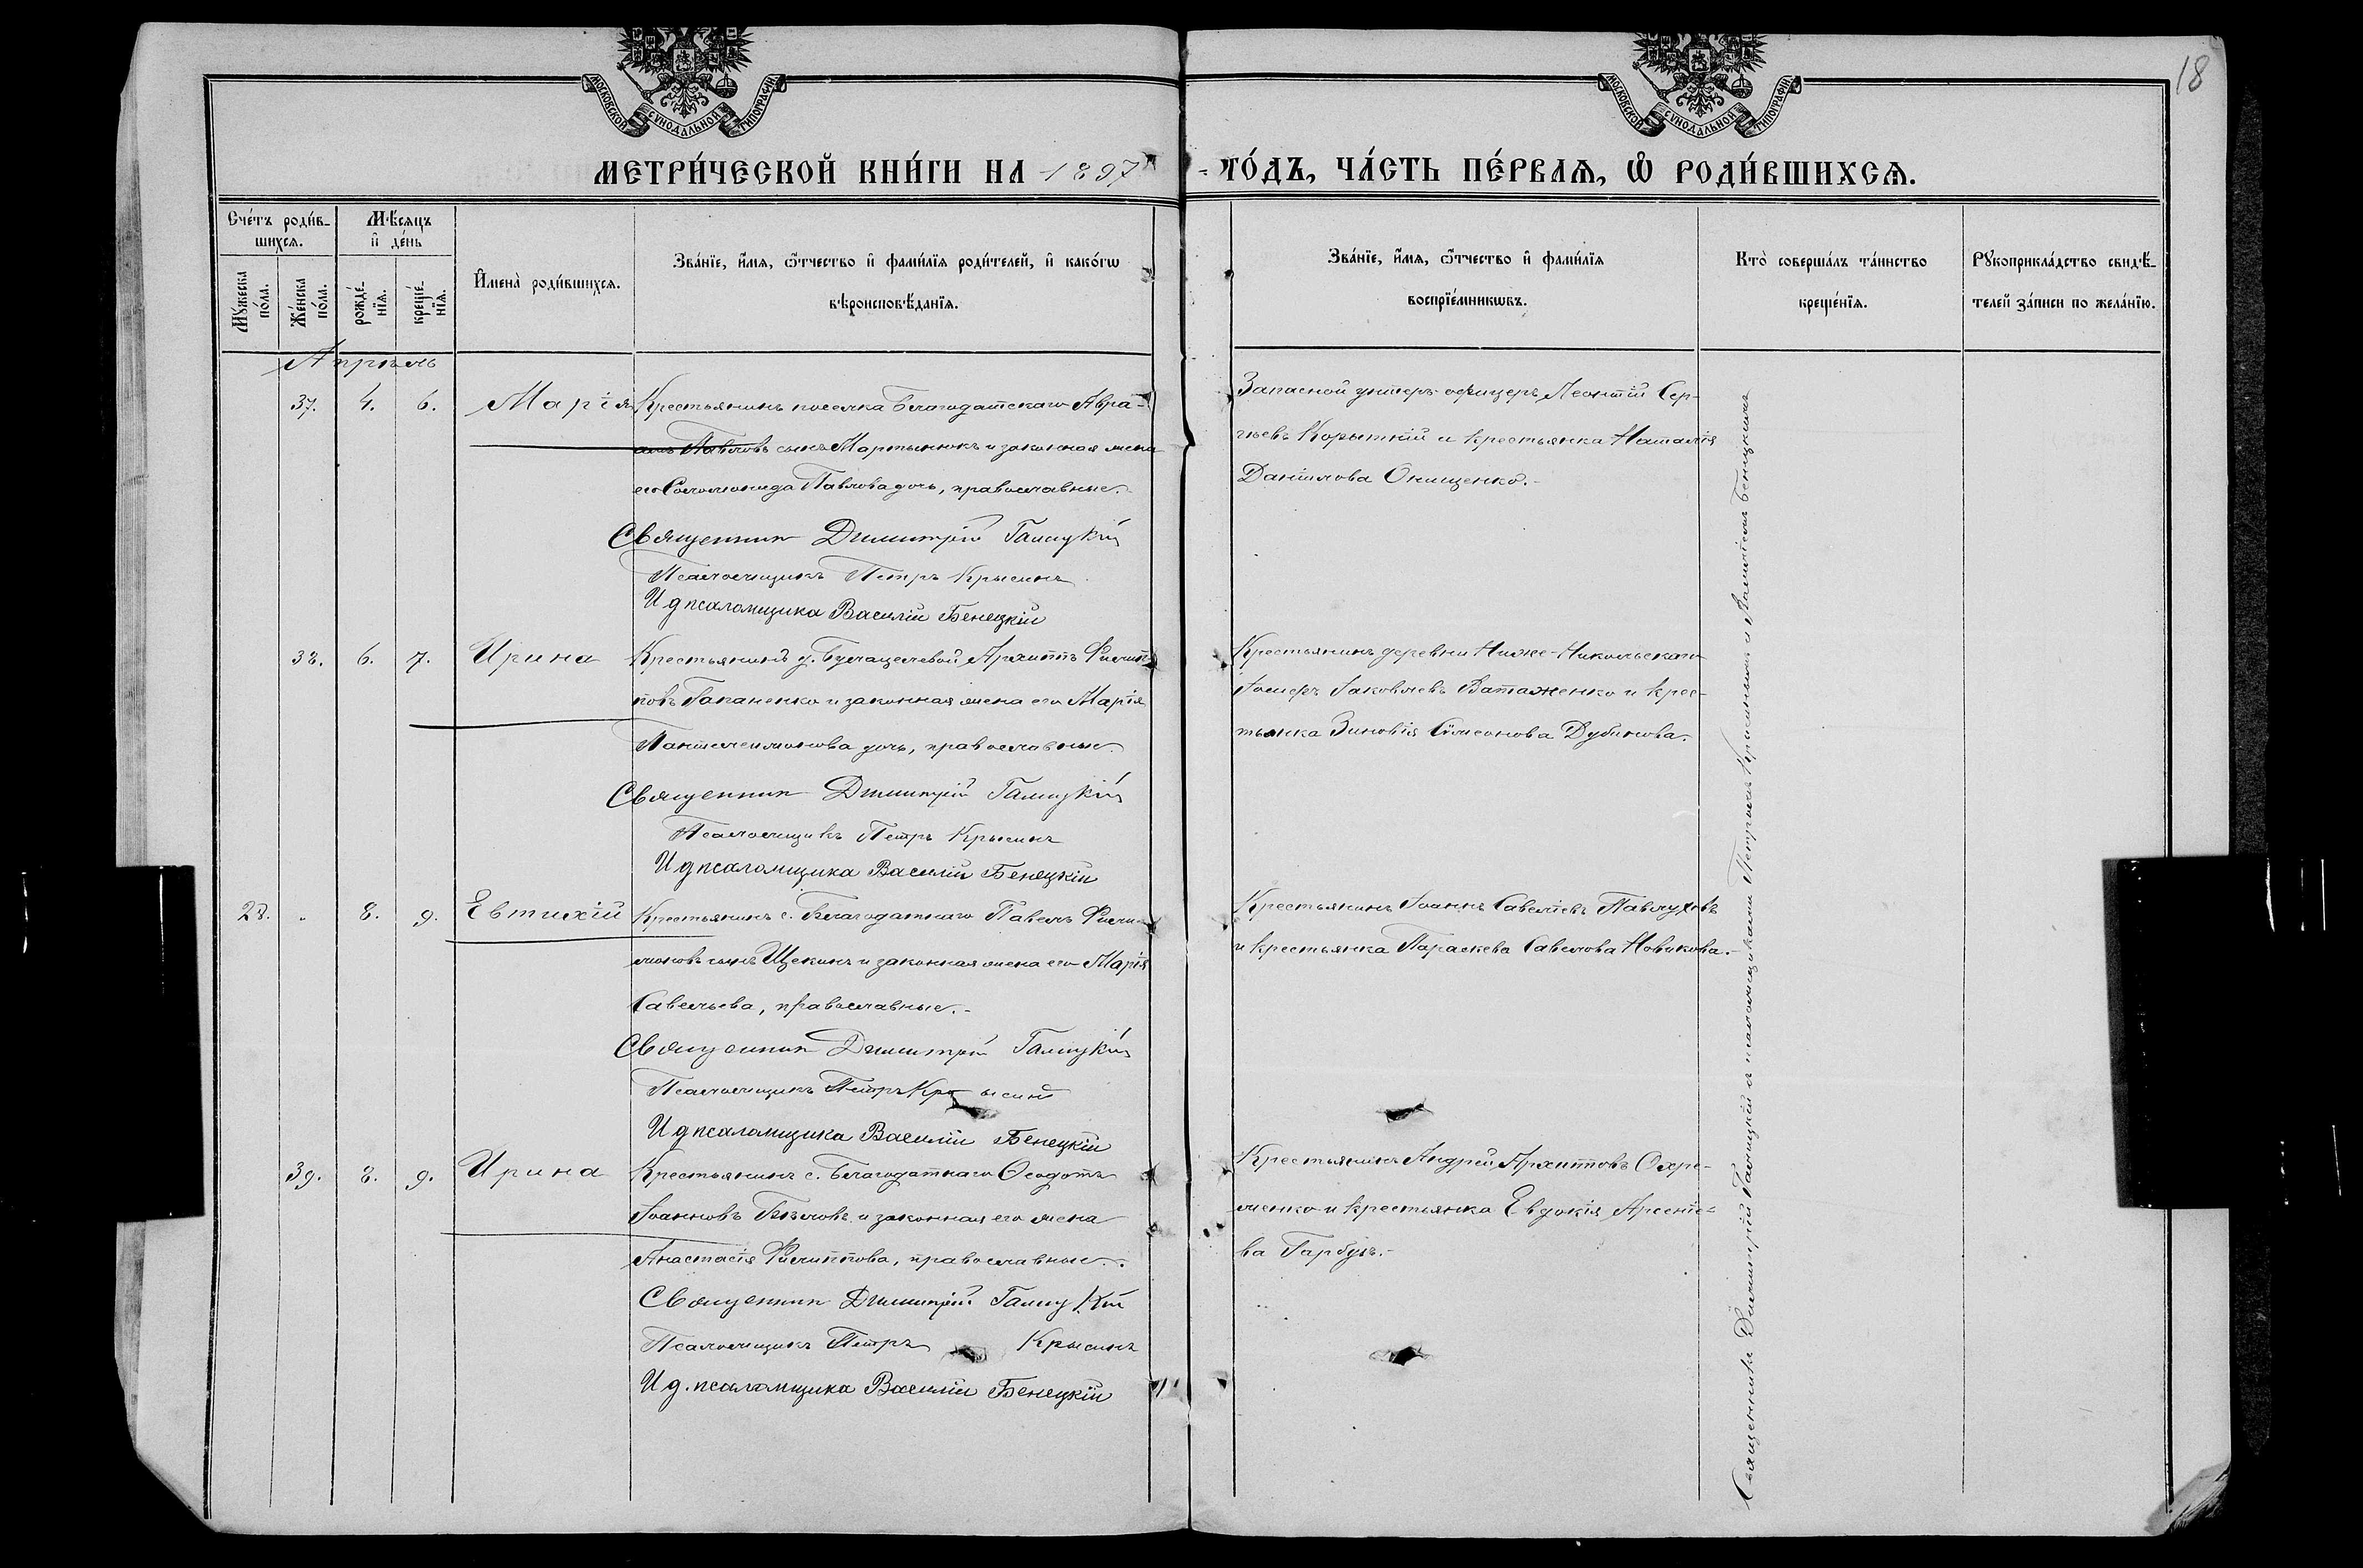 18
МОСКОВСКОЙ СѴНОДАЛЬНОЙ ТИПОГРАФІИ
МОСКОВСКОЙ СѴНОДАЛЬНОЙ ТИПОГРАФІИ
МЕТРИ́ЧЕСКОЙ КНИ́ГИ НА 1897 ГО́ДЪ, ЧА́СТЬ ПЕ́РВАѦ, Ѡ РОДИ́ВШИХСѦ.
Сче́тъ роди́в-
шихсѧ.
Мѣ́сѧцъ
и де́нь
Мꙋжеска по́ла.
Же́нска по́ла.
рожде́-нїѧ.
креще́-нїѧ.
Имена̀ роди́вшихсѧ.
Зва́нїе, и́мѧ, ѻ́тчество и фами́лїѧ роди́телей, и како́гѡ
вѣроисповѣ́данїѧ.
Зва́нїе, и́мѧ, ѻ́тчество и фами́лїѧ
воспрїе́мникѡвъ.
Кто̀ соверша́лъ та́инство
креще́нїѧ.
Рꙋкоприкла́дство свидѣ́-
телей за́писи по жела́нїю.
Апрѣль
37. 4. 6. Марія Крестьянинъ поселка Благодатскаго Авра-
амъ Павловъ сынъ Мартынюкъ и законная жена
его Соломонида Павлова дочь, православные.
Священник Димитрій Галицкій
Псаломщикъ Петръ Крысинъ
И д псаломщика Василій Бенецкій
Запасной унтеръ-офицеръ Леонтій Сер-
гѣевъ Корыткій и крестьянка Наталія
Даніилова Онищенко.-
38. 6. 7. Ирина Крестьянинъ д. Булацелевой Архиппъ Филип-
повъ Гапаненко и законная жена его Марія
Пантелеимонова дочь, православные.
Священник Димитрій Галицкій
Псаломщикъ Петръ Крысинъ
И д псаломщика Василій Бенецкій
Крестьянинъ деревни Ниже-Никольской
Іосифъ Іаковлевъ Ватаженко и крес-
тьянка Зиновія Симеонова Дубинова.
28. " 8. 9. Евтихій Крестьянинъ с. Благодатнаго Павелъ Фили-
моновъ сынъ Щекинъ и законная жена его Марія
Савельева, православные.-
Священник Димитрій Галицкій
Псаломщикъ Петръ Крысинъ
И д псаломщика Василій Бенецкій
Крестьянинъ Іоаннъ Савеліевъ Павлуховъ
и крестьянка Параскева Савелова Новикова.-
39. 8. 9. Ирина Крестьянинъ с. Благодатнаго Ѳеодотъ
Іоанновъ Бѣловъ и законная его жена
Анастасія Филиппова, православные.
Священник Димитрій Галицкій
Псаломщикъ Петръ Крысинъ
И д. псаломщика Василій Бенецкій
Крестьянинъ Андрей Архипповъ Охре-
менко и крестьянка Евдокія Арсеніе-
ва Гарбузъ.-
Священникъ Димитрій Галицкій съ псаломщиками Петромъ Крысинымъ и Бенецкимъ